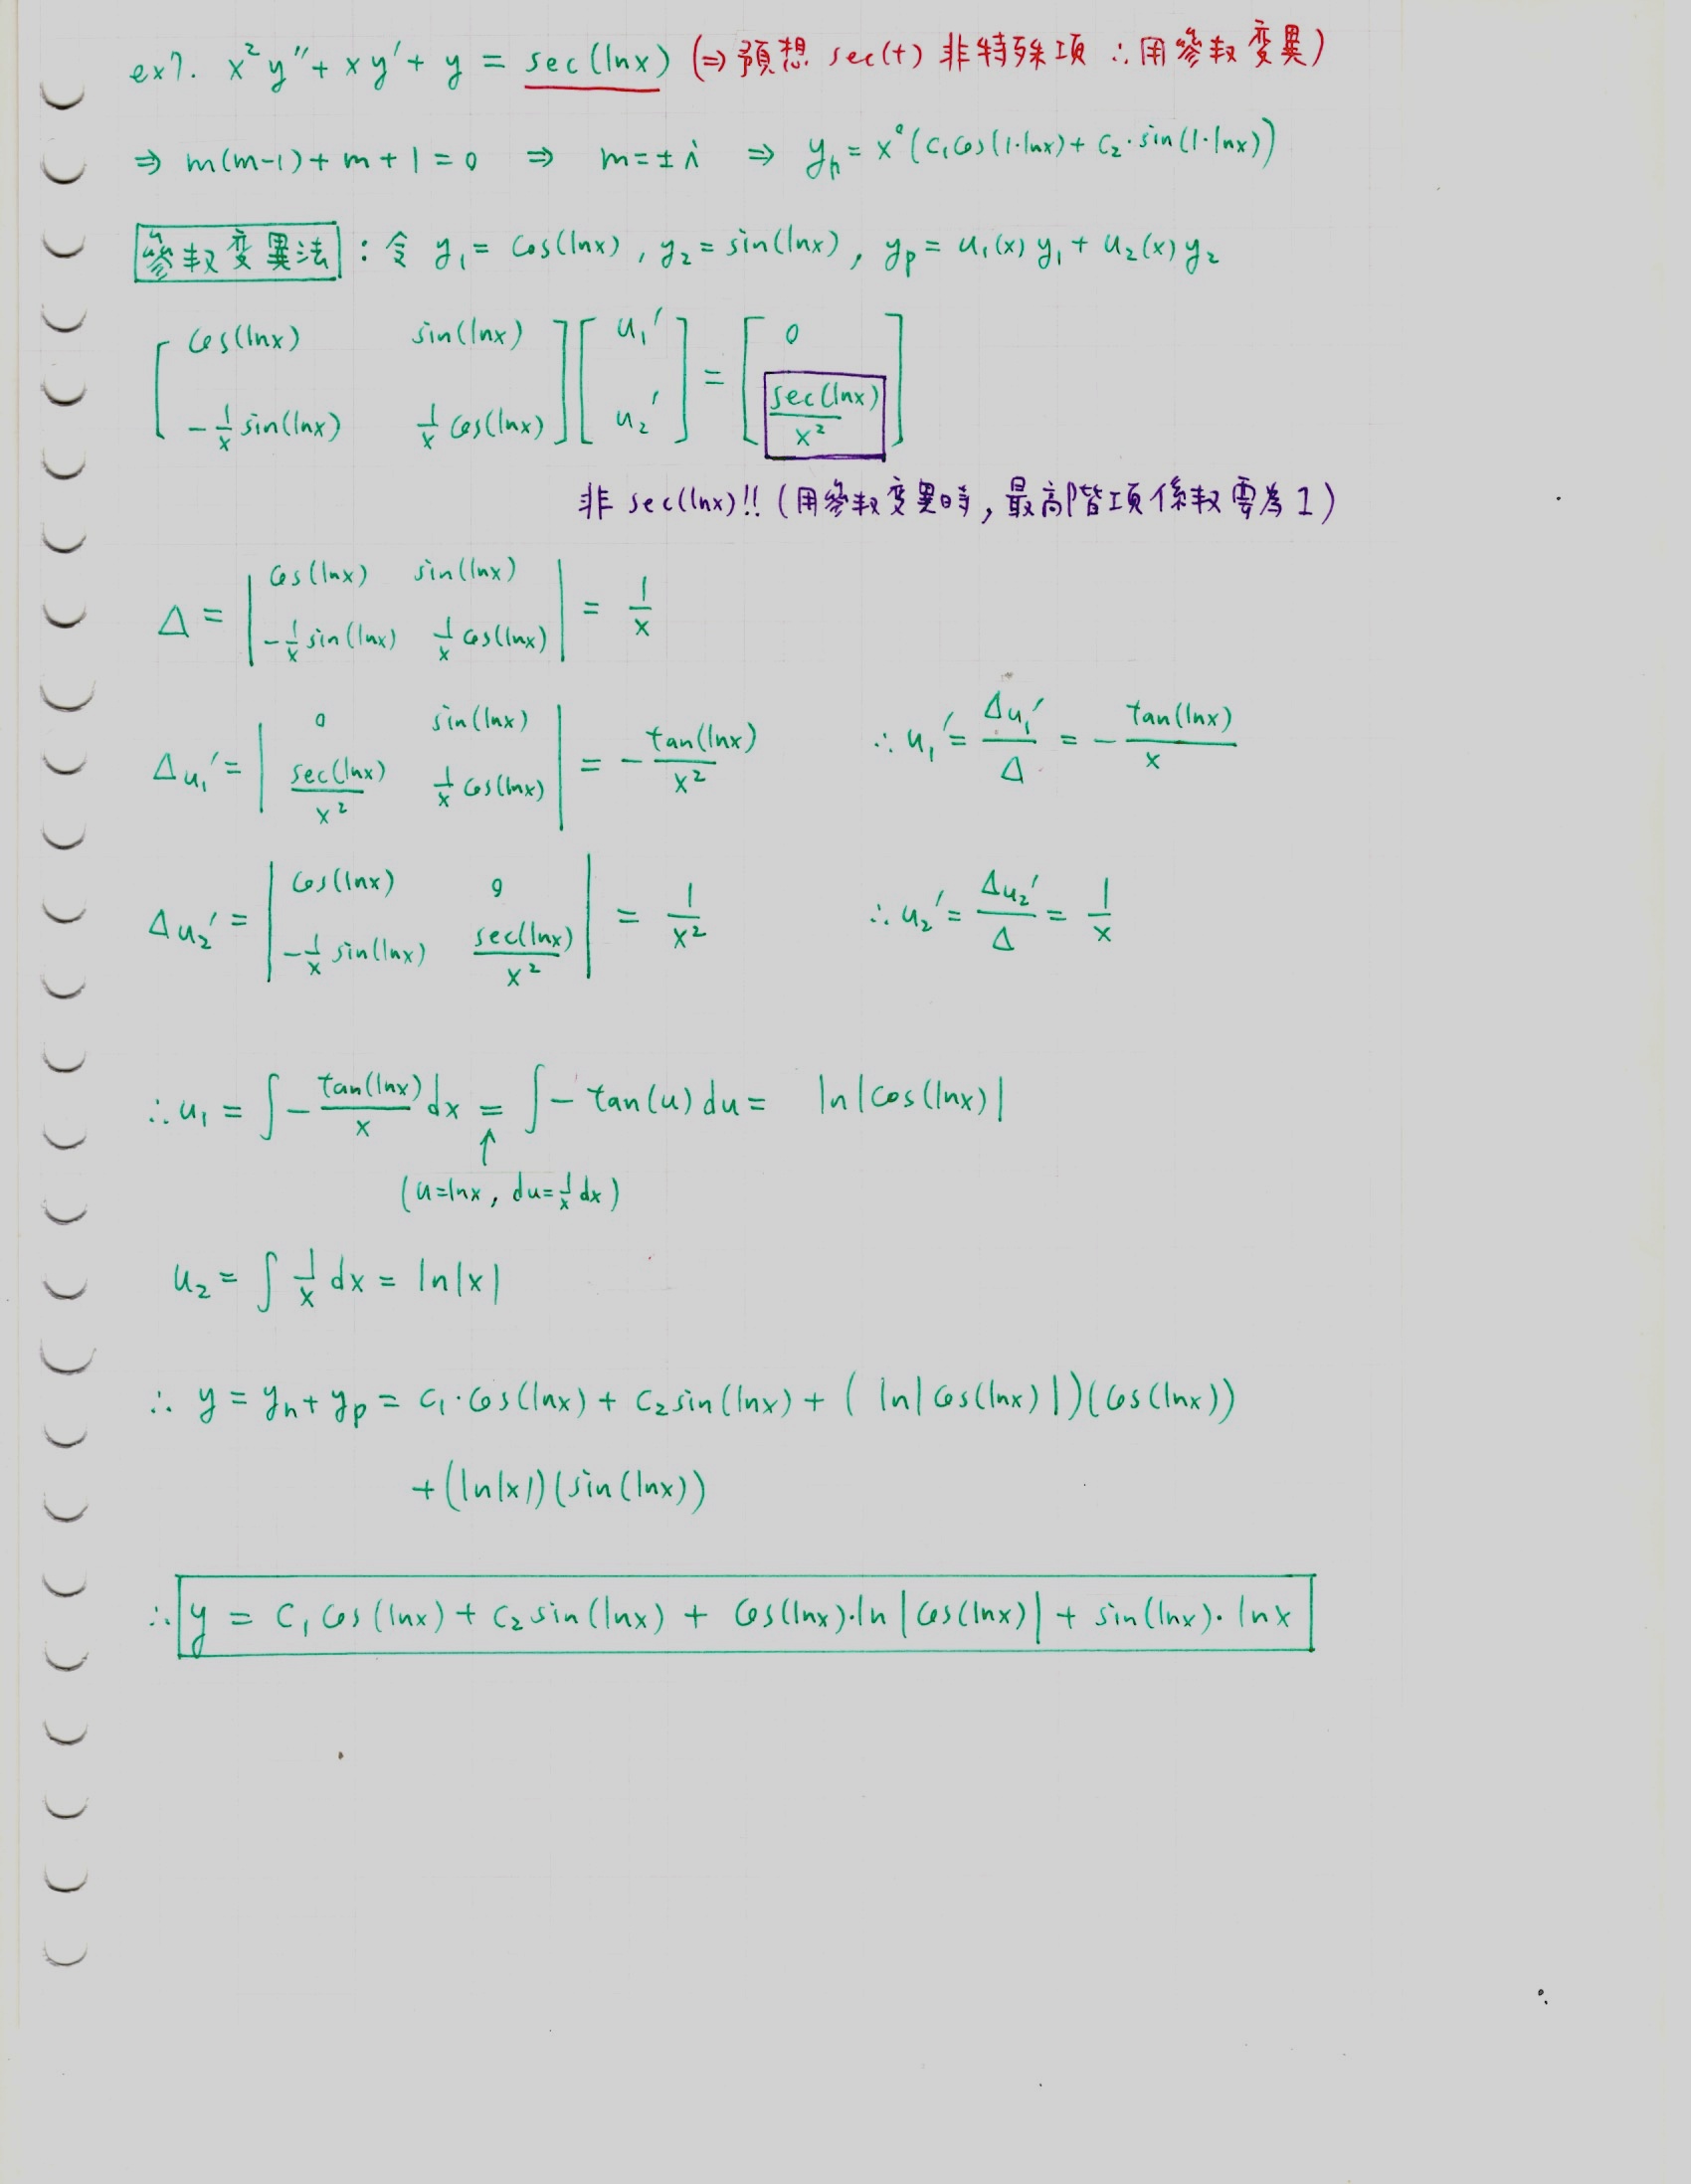 ex7. x²y'' + xy' + y = sec(lnx) (⇒ 預想 sec(t) 非特殊項 ∴用參数变異)
⇒ m(m-1) + m + 1 = 0 ⇒ m = ± i ⇒ y_h = x⁰(c₁cos(1·lnx) + c₂·sin(1·lnx))
參数变異法 : 令 y₁ = cos(lnx), y₂ = sin(lnx), y_p = u₁(x) y₁ + u₂(x) y₂
[ cos(lnx) sin(lnx) ; -1/x sin(lnx) 1/x cos(lnx) ] [ u₁' ; u₂' ] = [ 0 ; sec(lnx)/x² ]
非 sec(lnx)!! (用參数变異時, 最高階項係数需為1)
Δ = | cos(lnx) sin(lnx) ; -1/x sin(lnx) 1/x cos(lnx) | = 1/x
Δu₁' = | 0 sin(lnx) ; sec(lnx)/x² 1/x cos(lnx) | = - tan(lnx)/x² ∴ u₁' = Δu₁'/Δ = - tan(lnx)/x
Δu₂' = | cos(lnx) 0 ; -1/x sin(lnx) sec(lnx)/x² | = 1/x² ∴ u₂' = Δu₂'/Δ = 1/x
∴ u₁ = ∫ - tan(lnx)/x dx = ∫ - tan(u) du = ln|cos(lnx)|
↑
(u=lnx, du=1/x dx)
u₂ = ∫ 1/x dx = ln|x|
∴ y = y_h + y_p = c₁·cos(lnx) + c₂sin(lnx) + ( ln|cos(lnx)|)(cos(lnx))
+ (ln|x|)(sin(lnx))
∴ y = c₁cos(lnx) + c₂sin(lnx) + cos(lnx)·ln|cos(lnx)| + sin(lnx)·lnx